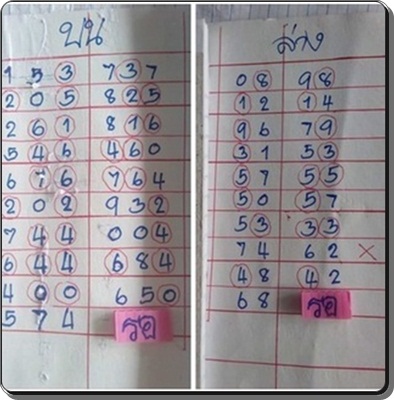 บน
153 737
205 825
261 816
546 460
676 764
202 932
744 004
644 684
400 650
574 รอ
ล่าง
08 98
12 14
96 79
31 53
57 55
50 57
53 33
74 62 ×
48 42
68 รอ